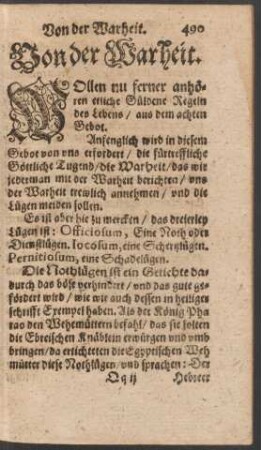 Von der Warheit. 490
Von der Warheit.
WOllen nu ferner anhö-
ren etliche Güldene Regeln
des Lebens / aus dem achten
Gebot.
Anfenglich wird in diesem
Gebot von vns erfordert / die fürtreffliche
Göttliche Tugend / die Warheit / das wir
jederman mit der Warheit berichten / vns
der Warheit trewlich annehmen / vnd die
Lügen meiden sollen.
Es ist aber hie zu mercken / das dreierley
Lügen ist: Officiosum, Eine Noth oder
Dienstlügen. Iocosum, eine Schertzlügen.
Pernitiosum, eine Schadelügen.
Die Nothlügen ist ein Getichte da-
durch das böse verhindert / vnd das gute ge-
fördert wird / wie wir auch dessen in heiliger
schrifft Exempel haben. Als der König Pha
rao den Wehemüttern befahl / das sie solten
die Ebreischen Knäblein erwürgen vnd vmb
bringen / da ertichteten die Egyptischen Weh
mütter diese Nothlügen / vnd sprachen: Der
Qq ij Hebreer